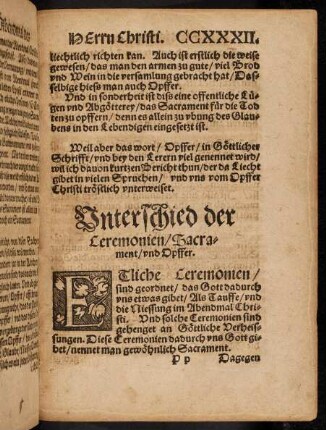 HErrn Christi. CCXXXII.
liechtlich richten kan. Auch ist erstlich die weise
gewesen/ das man den armen zu gute/ viel Brod
vnd Wein in die versamlung gebracht hat/ Das-
selbige hies man auch Opffer.
Vnd in sonderheit ist dis eine offentliche Lü-
gen vnd Abgötterey/ das Sacrament für die Tod
ten zu opffern/ denn es allein zu vbung des Glau-
bens in den Lebendigen eingesetzt ist.
Weil aber das wort/ Opffer/ in Göttlicher
Schrifft/ vnd bey den Lerern viel genennet wird/
wil ich dauon kurtzen Bericht thun/ der da Liecht
gibet in vielen Sprüchen/ vnd vns vom Opffer
Christi tröstlich vnterweiset.
Vnterschied der
Ceremonien/ Sacra-
ment/ vnd Opffer.
ETliche Ceremonien/
sind geordnet/ das Gott dadurch
vns etwas gibet/ Als Tauffe/ vnd
die Niessung im Abendmal Chri-
sti. Vnd solche Ceremonien sind
gehenget an Göttliche Verheis-
sungen. Diese Ceremonien dadurch vns Gott gi-
bet/ nennet man gewöhnlich Sacrament.
P p Dagegen